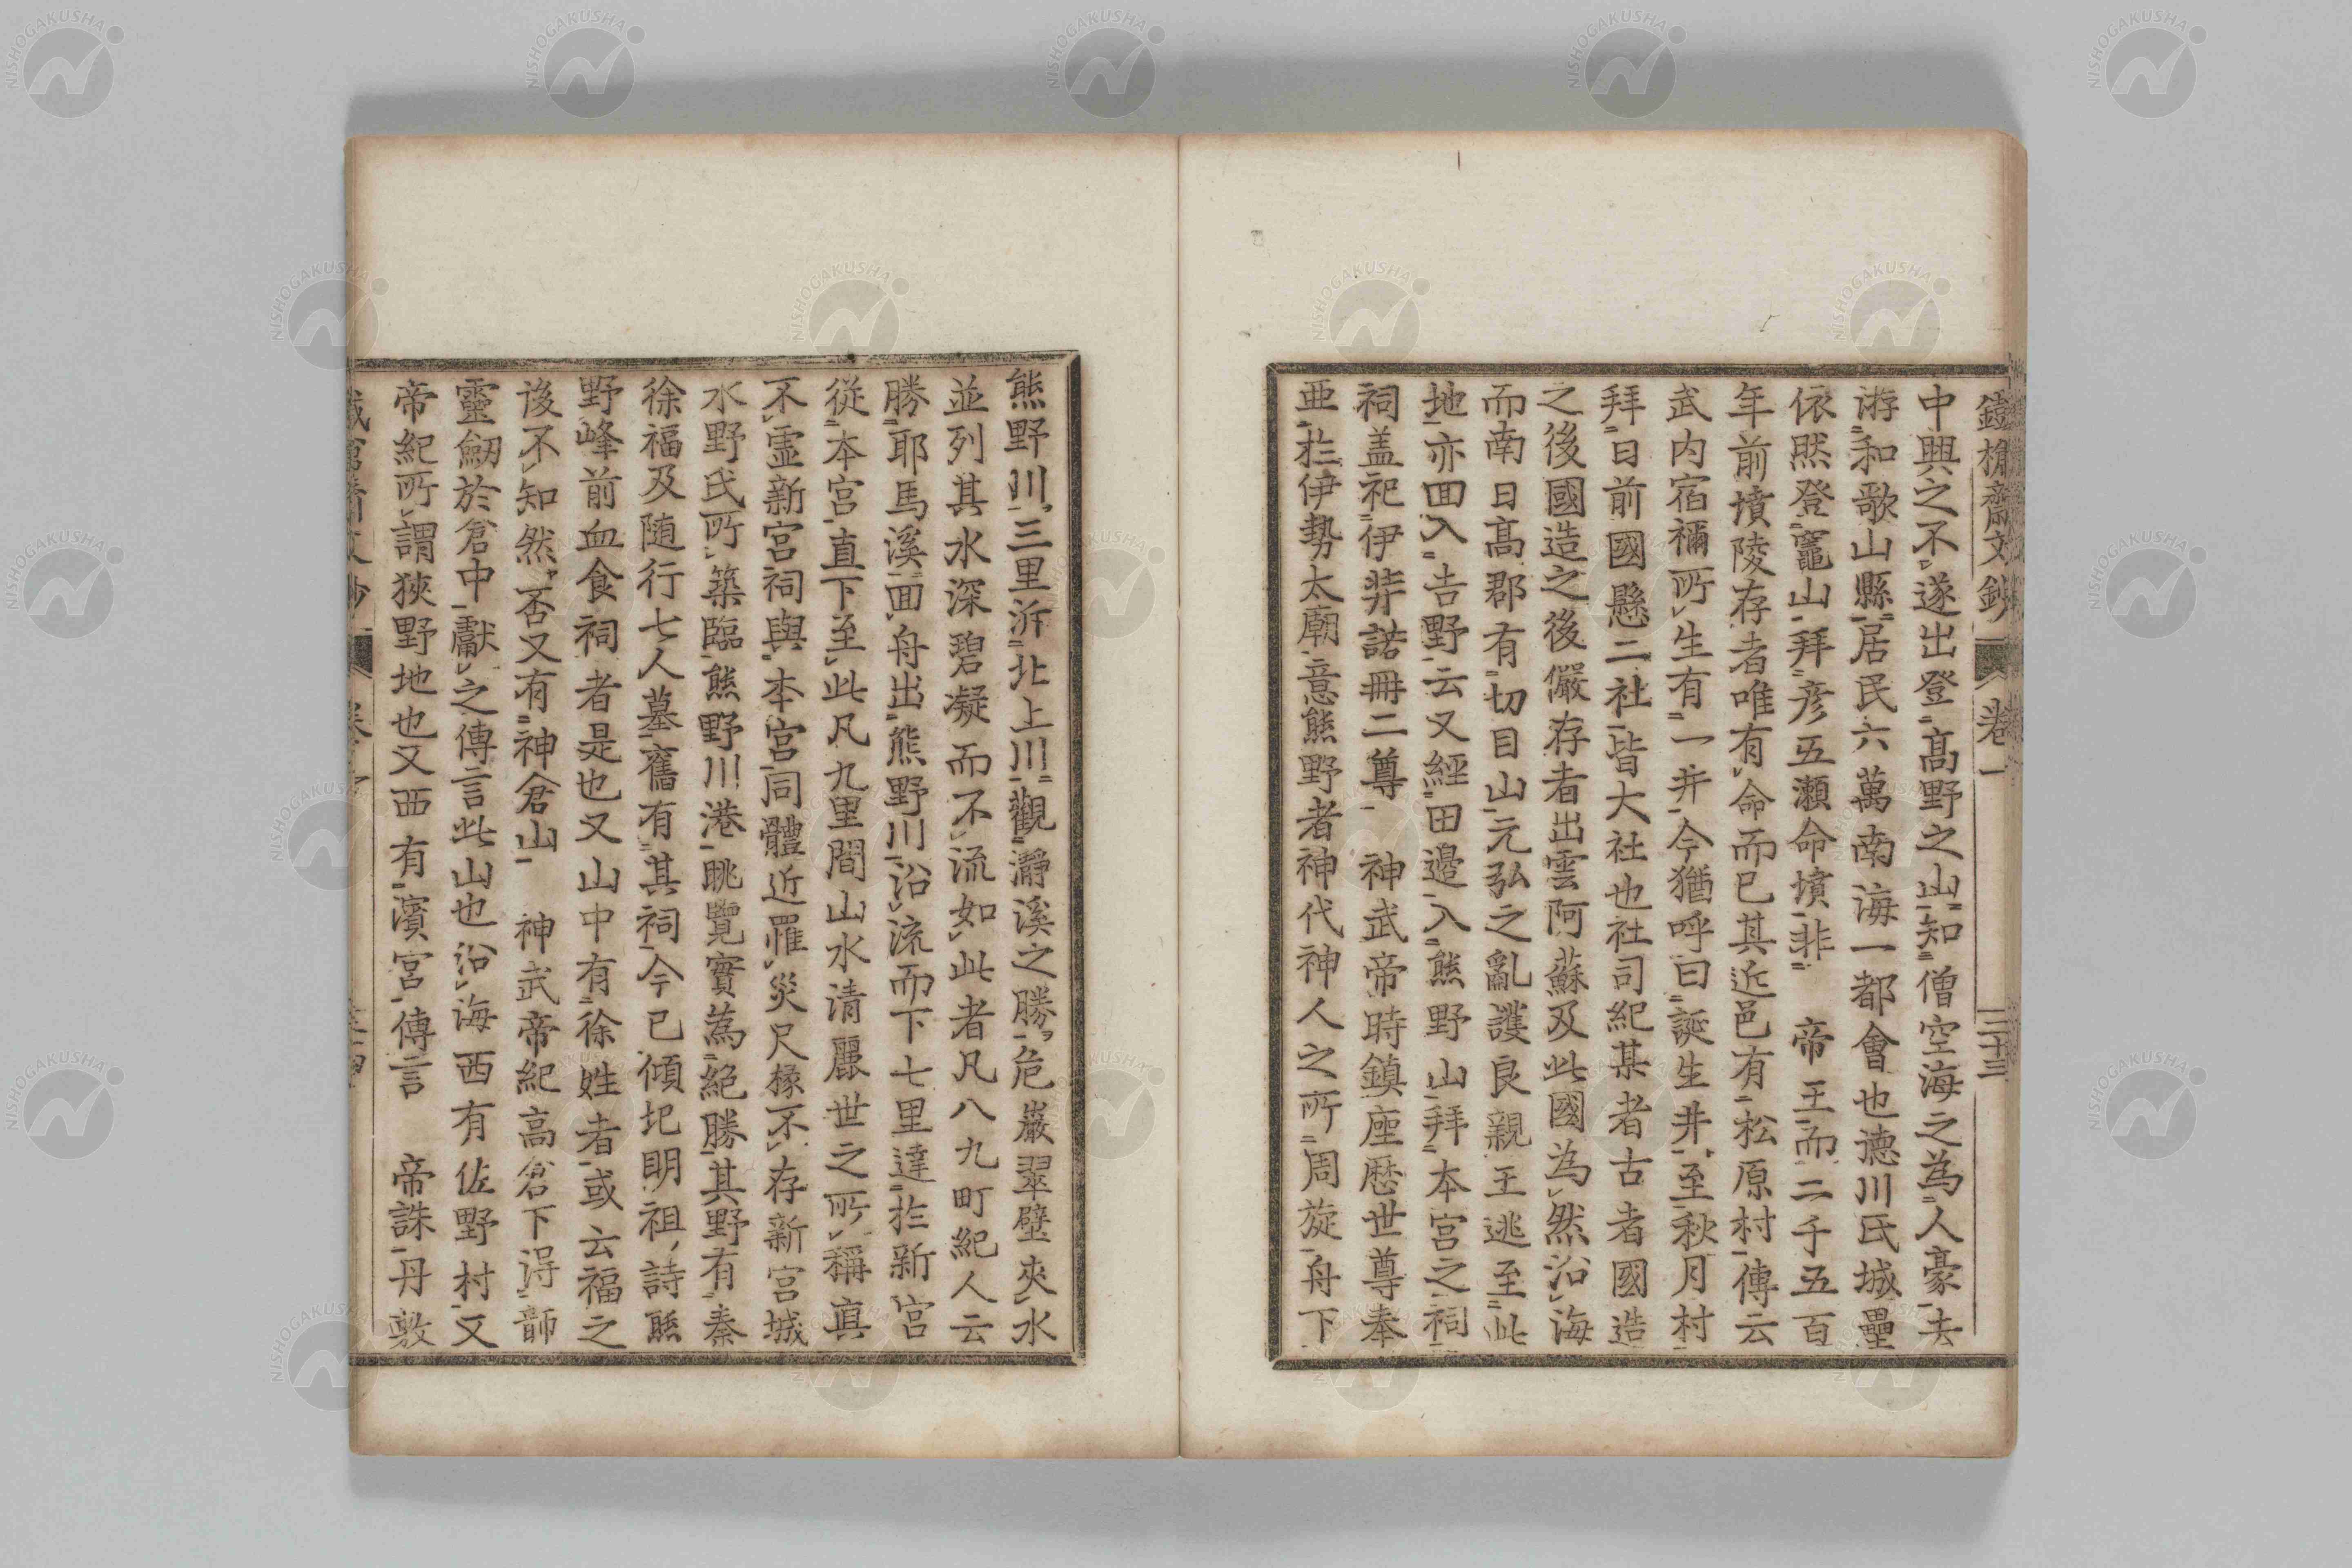 鐙𣝅齋文鈔 卷一 二十三
中興之不遂出登高野之山知僧空海之為人豪去
游和歌山縣居民六萬南海一都會也德川氏城壘
依然登竈山拜彥五瀬命墳非 帝王而二千五百
年前墳陵存者唯有命而已其近邑有松原村傳云
武內宿禰所生有一井今猶呼曰誕生井至秋月村
拜日前國懸二社皆大社也社司紀某者古者國造
之後國造之後儼存者出雲阿蘇及此國為然沿海
而南日高郡有切目山元弘之亂護良親王逃至此
地亦回入吉野云又經田邊入熊野山拜本宮之祠
祠盖祀伊弉諾冊二尊 神武帝時鎮座歷世尊奉
亜於伊勢太廟意熊野者神代神人之所周旋舟下
熊野川三里泝北上川觀瀞溪之勝危巖翠壁夾水
並列其水深碧凝而不流如此者凡八九町紀人云
勝耶馬溪面舟出熊野川沿流而下七里達於新宮
從本宮直下至此凡九里間山水清麗世之所稱真
不霊新宮祠與本宮同體近罹災尺椽不存新宮城
水野氏所築臨熊野川港眺覽實為絕勝其野有秦
徐福及随行七人墓舊有其祠今已傾圮明祖詩熊
野峰前血食祠者是也又山中有徐姓者或云福之
後不知然否又有神倉山 神武帝紀高倉下得韴
靈劒於倉中獻之傳言此山也沿海西有佐野村又
帝紀所謂狹野地也又西有濱宮傳言 帝誅丹敷